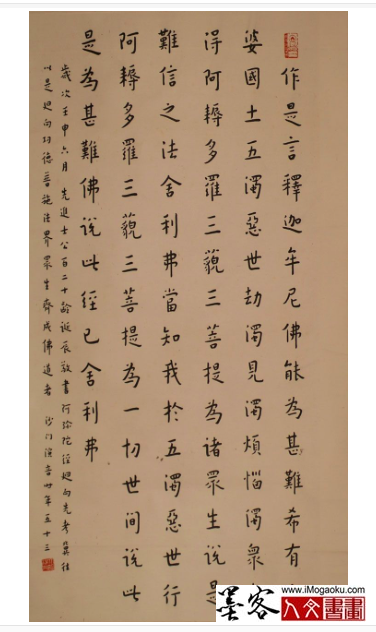 作是言釋迦牟尼佛能為甚難希有
婆國土五濁惡世劫濁見濁煩惱濁衆
得阿耨多羅三藐三菩提為諸眾生說是
難信之法舍利弗當知我於五濁惡世行
阿耨多羅三藐三菩提為一切世間說此
是為甚難佛說此經已舍利弗
歲次壬申六月 先進士公百二十齡誕辰敬書阿彌陀經迴向先考冀往
以是迴向功德普施法界眾生齊成佛道者 沙門演音 年五十三
墨客
www.iMogaoku.com
人文書畫